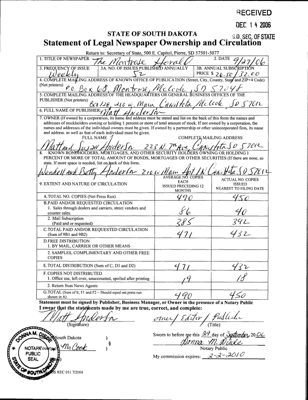 RECEIVED
DEC 14 2006
S.D. SEC. OF STATE
STATE OF SOUTH DAKOTA
Statement of Legal Newspaper Ownership and Circulation
Return to: Secretary of State, 500 E. Capitol, Pierre, SD 57501-5077
1. TITLE OF NEWSPAPER The Montrose Herald
2. DATE 9/27/06
3. FREQUENCY OF ISSUE Weekly
3A. NO. OF ISSUES PUBLISHED ANNUALLY 52
3B. ANNUAL SUBSCRIPTION PRICE $
4. COMPLETE MAILING ADDRESS OF KNOWN OFFICE OF PUBLICATION (Street, City, County, State and ZIP+4 Code)
(Not printers) PO Box 68, Montrose, McCook, SD 57048
5. COMPLETE MAILING ADDRESS OF THE HEADQUARTERS OR GENERAL BUSINESS OFFICE OF THE
PUBLISHER (Not printers)
6. FULL NAME OF PUBLISHER: Matt Anderson
7. OWNER (If owned by a corporation, its name and address must be stated and list on the back of this form the names and
addresses of stockholders owning or holding 1 percent or more of total amount of stock. If not owned by a corporation, the
names and addresses of the individual owners must be given. If owned by a partnership or other unincorporated firm, its name
and address, as well as that of each individual must be given.
FULL NAME
COMPLETE MAILING ADDRESS
8. KNOWN BONDHOLDERS, MORTGAGES AND OTHER SECURITY HOLDERS OWNING OR HOLDING 1
PERCENT OR MORE OF TOTAL AMOUNT OF BONDS, MORTGAGES OR OTHER SECURITIES (If there are none, so
state. If more space is needed, list on back of this form.
9. EXTENT AND NATURE OF CIRCULATION
AVERAGE NO. COPIES EACH ISSUED PRECEDING 12 MONTHS
ACTUAL NO. COPIES ISSUED NEAREST TO FILING DATE
A. TOTAL NO. COPIES (Net Press Run) 490 450
B. PAID AND/OR REQUESTED CIRCULATION
1. Sales through dealers and carriers, street vendors and
counter sales. 86 40
2. Mail Subscription
(Paid and or requested) 385 392
C. TOTAL PAID AND/OR REQUESTED CIRCULATION
(Sum of 9B1 and 9B2) 471 432
D. FREE DISTRIBUTION
1. BY MAIL, CARRIER OR OTHER MEANS
2. SAMPLES, COMPLIMENTARY AND OTHER FREE
COPIES
E. TOTAL DISTRIBUTION (Sum of C, D1 and D2) 471 432
F. COPIES NOT DISTRIBUTED
1. Office use, left over, unaccounted, spoiled after printing 19 18
2. Return from News Agents
G. TOTAL (Sum of E, F1 and F2 - Should equal net press run
shown in A) 490 450
Statement must be signed by Publisher, Business Manager, or Owner in the presence of a Notary Public
I swear that the statements made by me are true, correct, and complete:
Matt Anderson
(Signature)
owner/Editor/Publisher
(Title)
South Dakota
McCook
Sworn to before me this day of September 2006
Notary Public
My commission expires: 2-2-2010
NOTARY
PUBLIC
SEAL